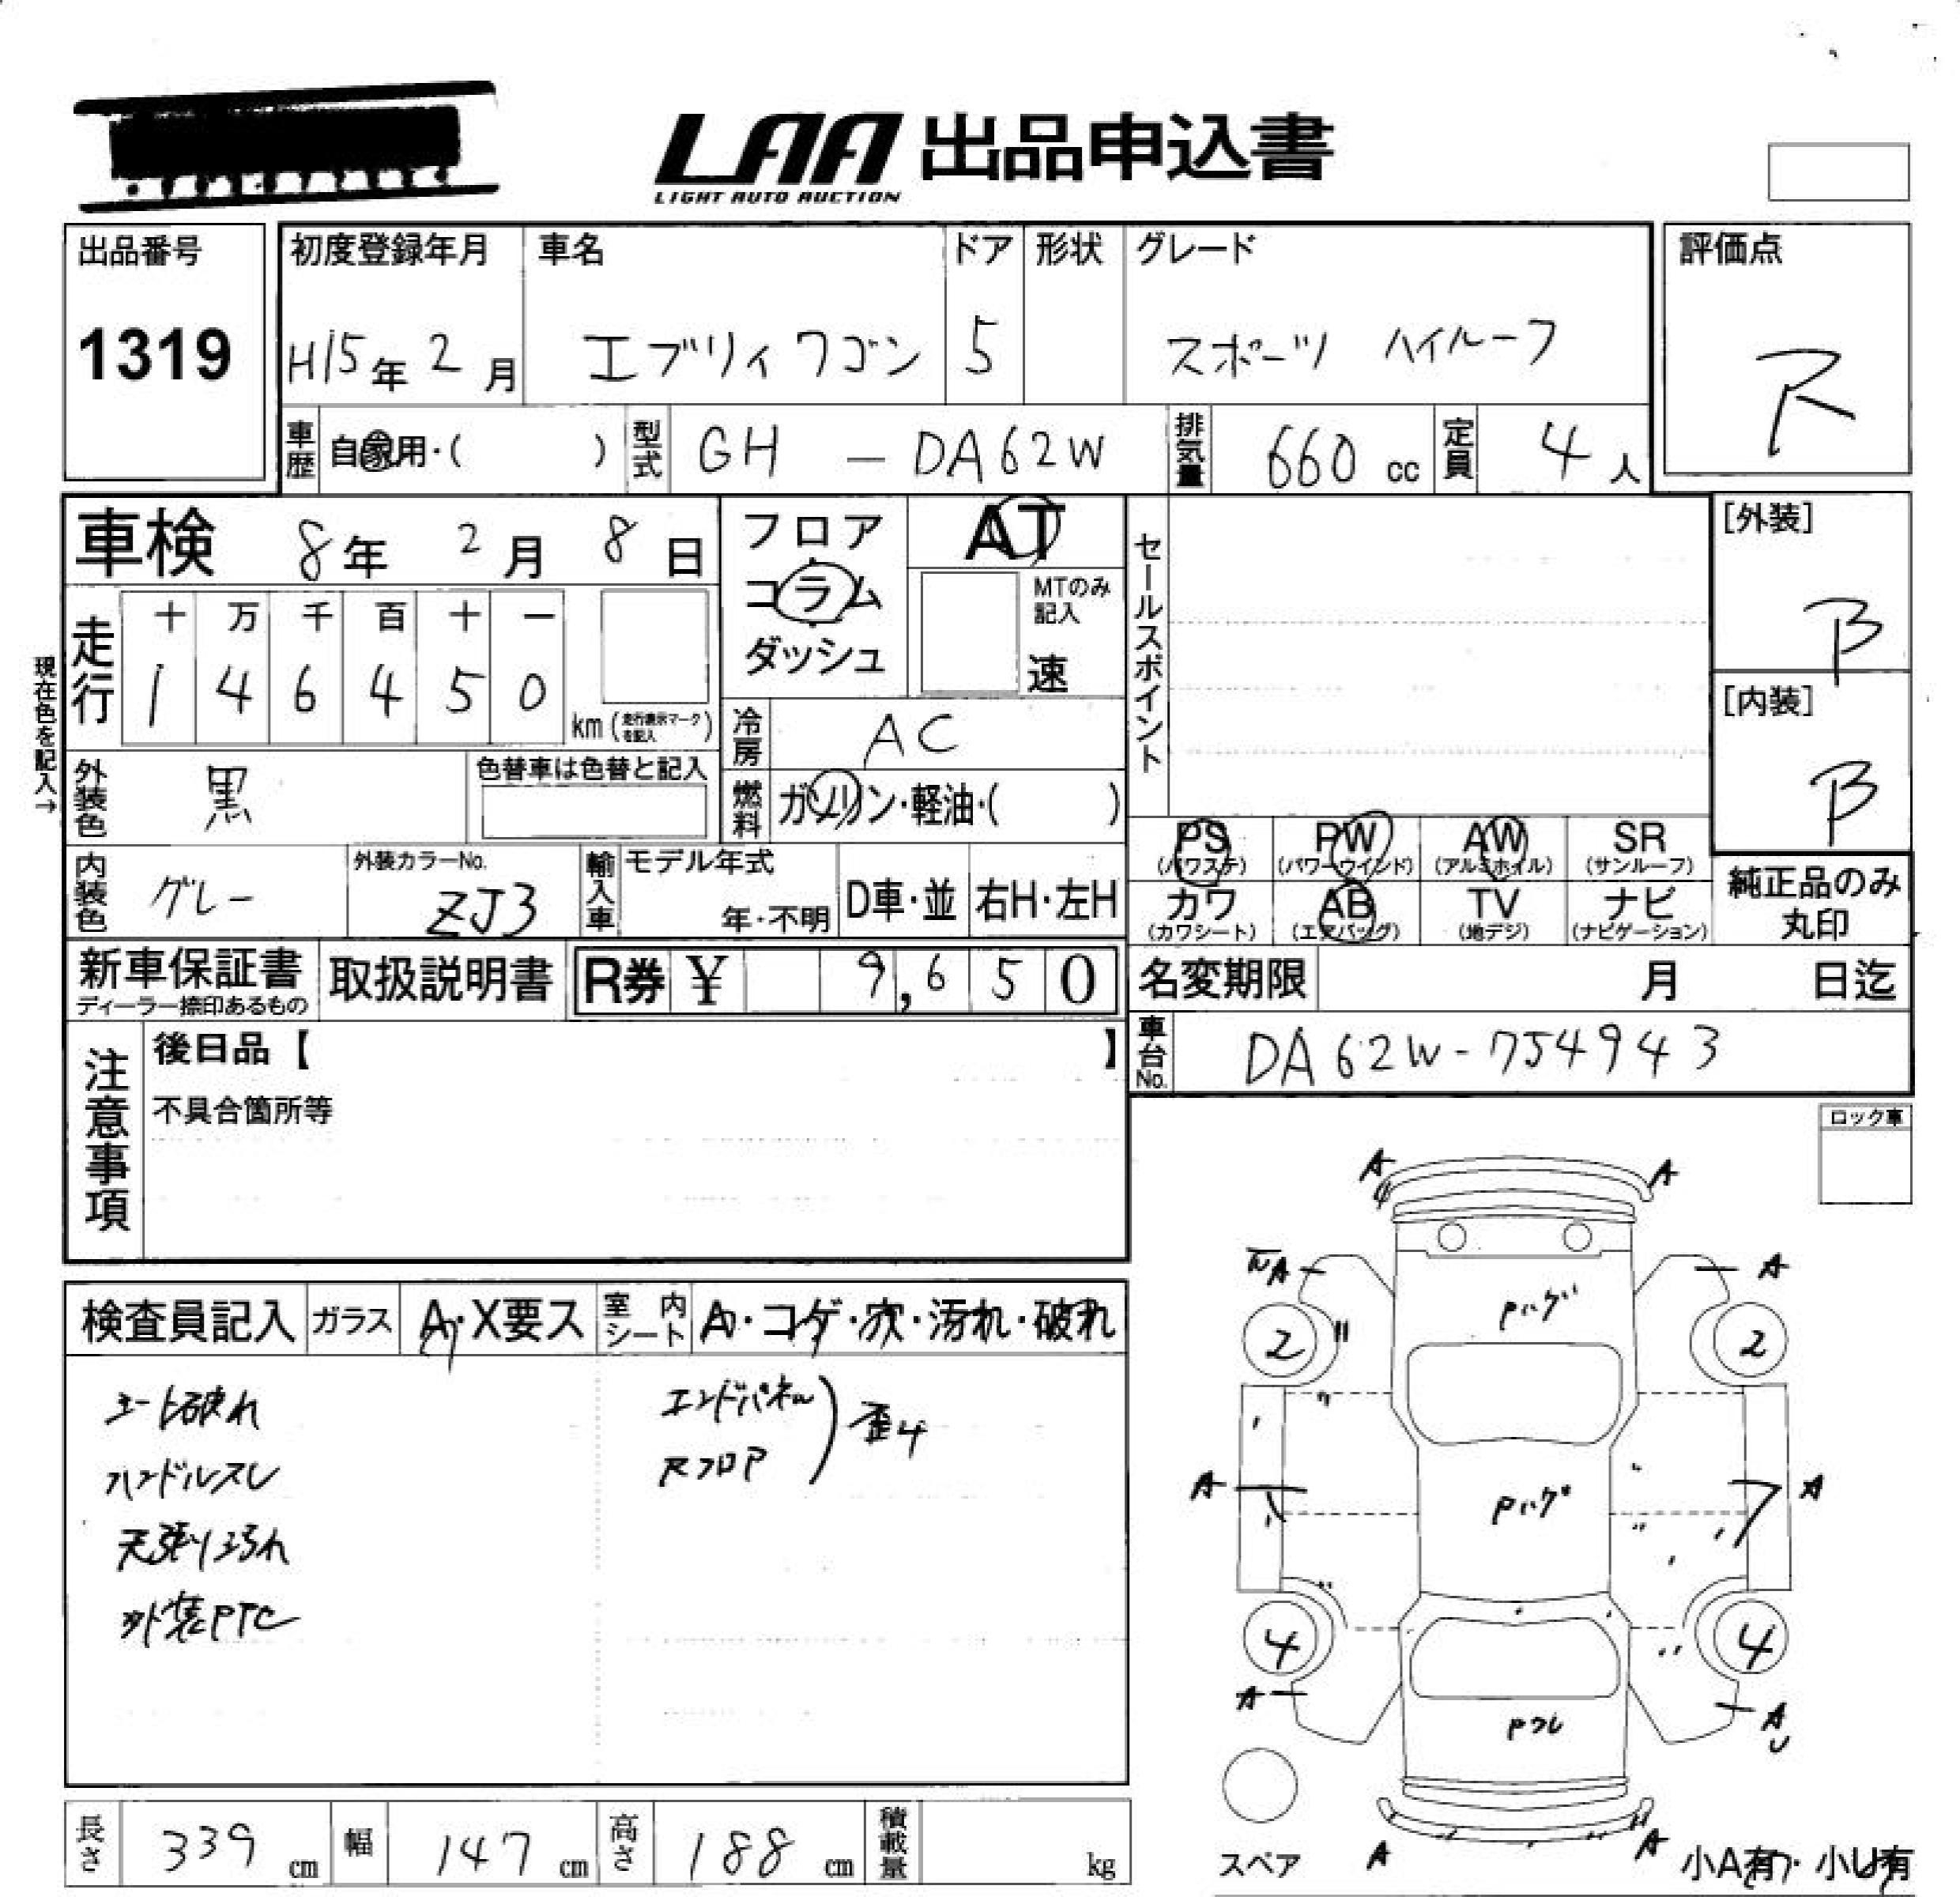 LAA 出品申込書
LIGHT AUTO AUCTION
出品番号
1319
初度登録年月
H15年 2月
車名
エブリィワゴン
ドア
5
形状
グレード
スポーツ ハイルーフ
評価点
R
車歴 自家用・( )
型式 GH - DA62W
排気量 660 cc
定員 4人
車検 8年 2月 8日
走行
十 万 千 百 十 一
1 4 6 4 5 0
km (走行表示マークを記入)
現在色を記入→
フロア
コラム
ダッシュ
AT
MTのみ記入
速
冷房 AC
燃料 ガソリン・軽油・( )
セールスポイント
[外装]
B
[内装]
B
外装色 黒
色替車は色替と記入
内装色 グレー
外装カラーNo.
ZJ3
輸入車
モデル年式
年・不明
D車・並
右H・左H
PS (パワステ)
PW (パワーウインド)
AW (アルミホイル)
SR (サンルーフ)
カワ (カワシート)
AB (エアバッグ)
TV (地デジ)
ナビ (ナビゲーション)
純正品のみ
丸印
新車保証書
ディーラー捺印あるもの
取扱説明書
R券 ¥ 9,650
名変期限 月 日迄
車台No. DA62W-754943
注意事項
後日品【 】
不具合箇所等
ロック車
検査員記入
ガラス A・X要ス
室内シート A・コゲ・穴・汚れ・破れ
シート破れ
ハンドルスレ
天張り汚れ
外装PTC
エンドパネル
Rフロア
歪4
A A
A A
Pハゲ
2 2
A A
Pハゲ
4 4
A A
U
Pフレ
A A
スペア
小A有・小U有
長さ 339 cm
幅 147 cm
高さ 188 cm
積載量 kg